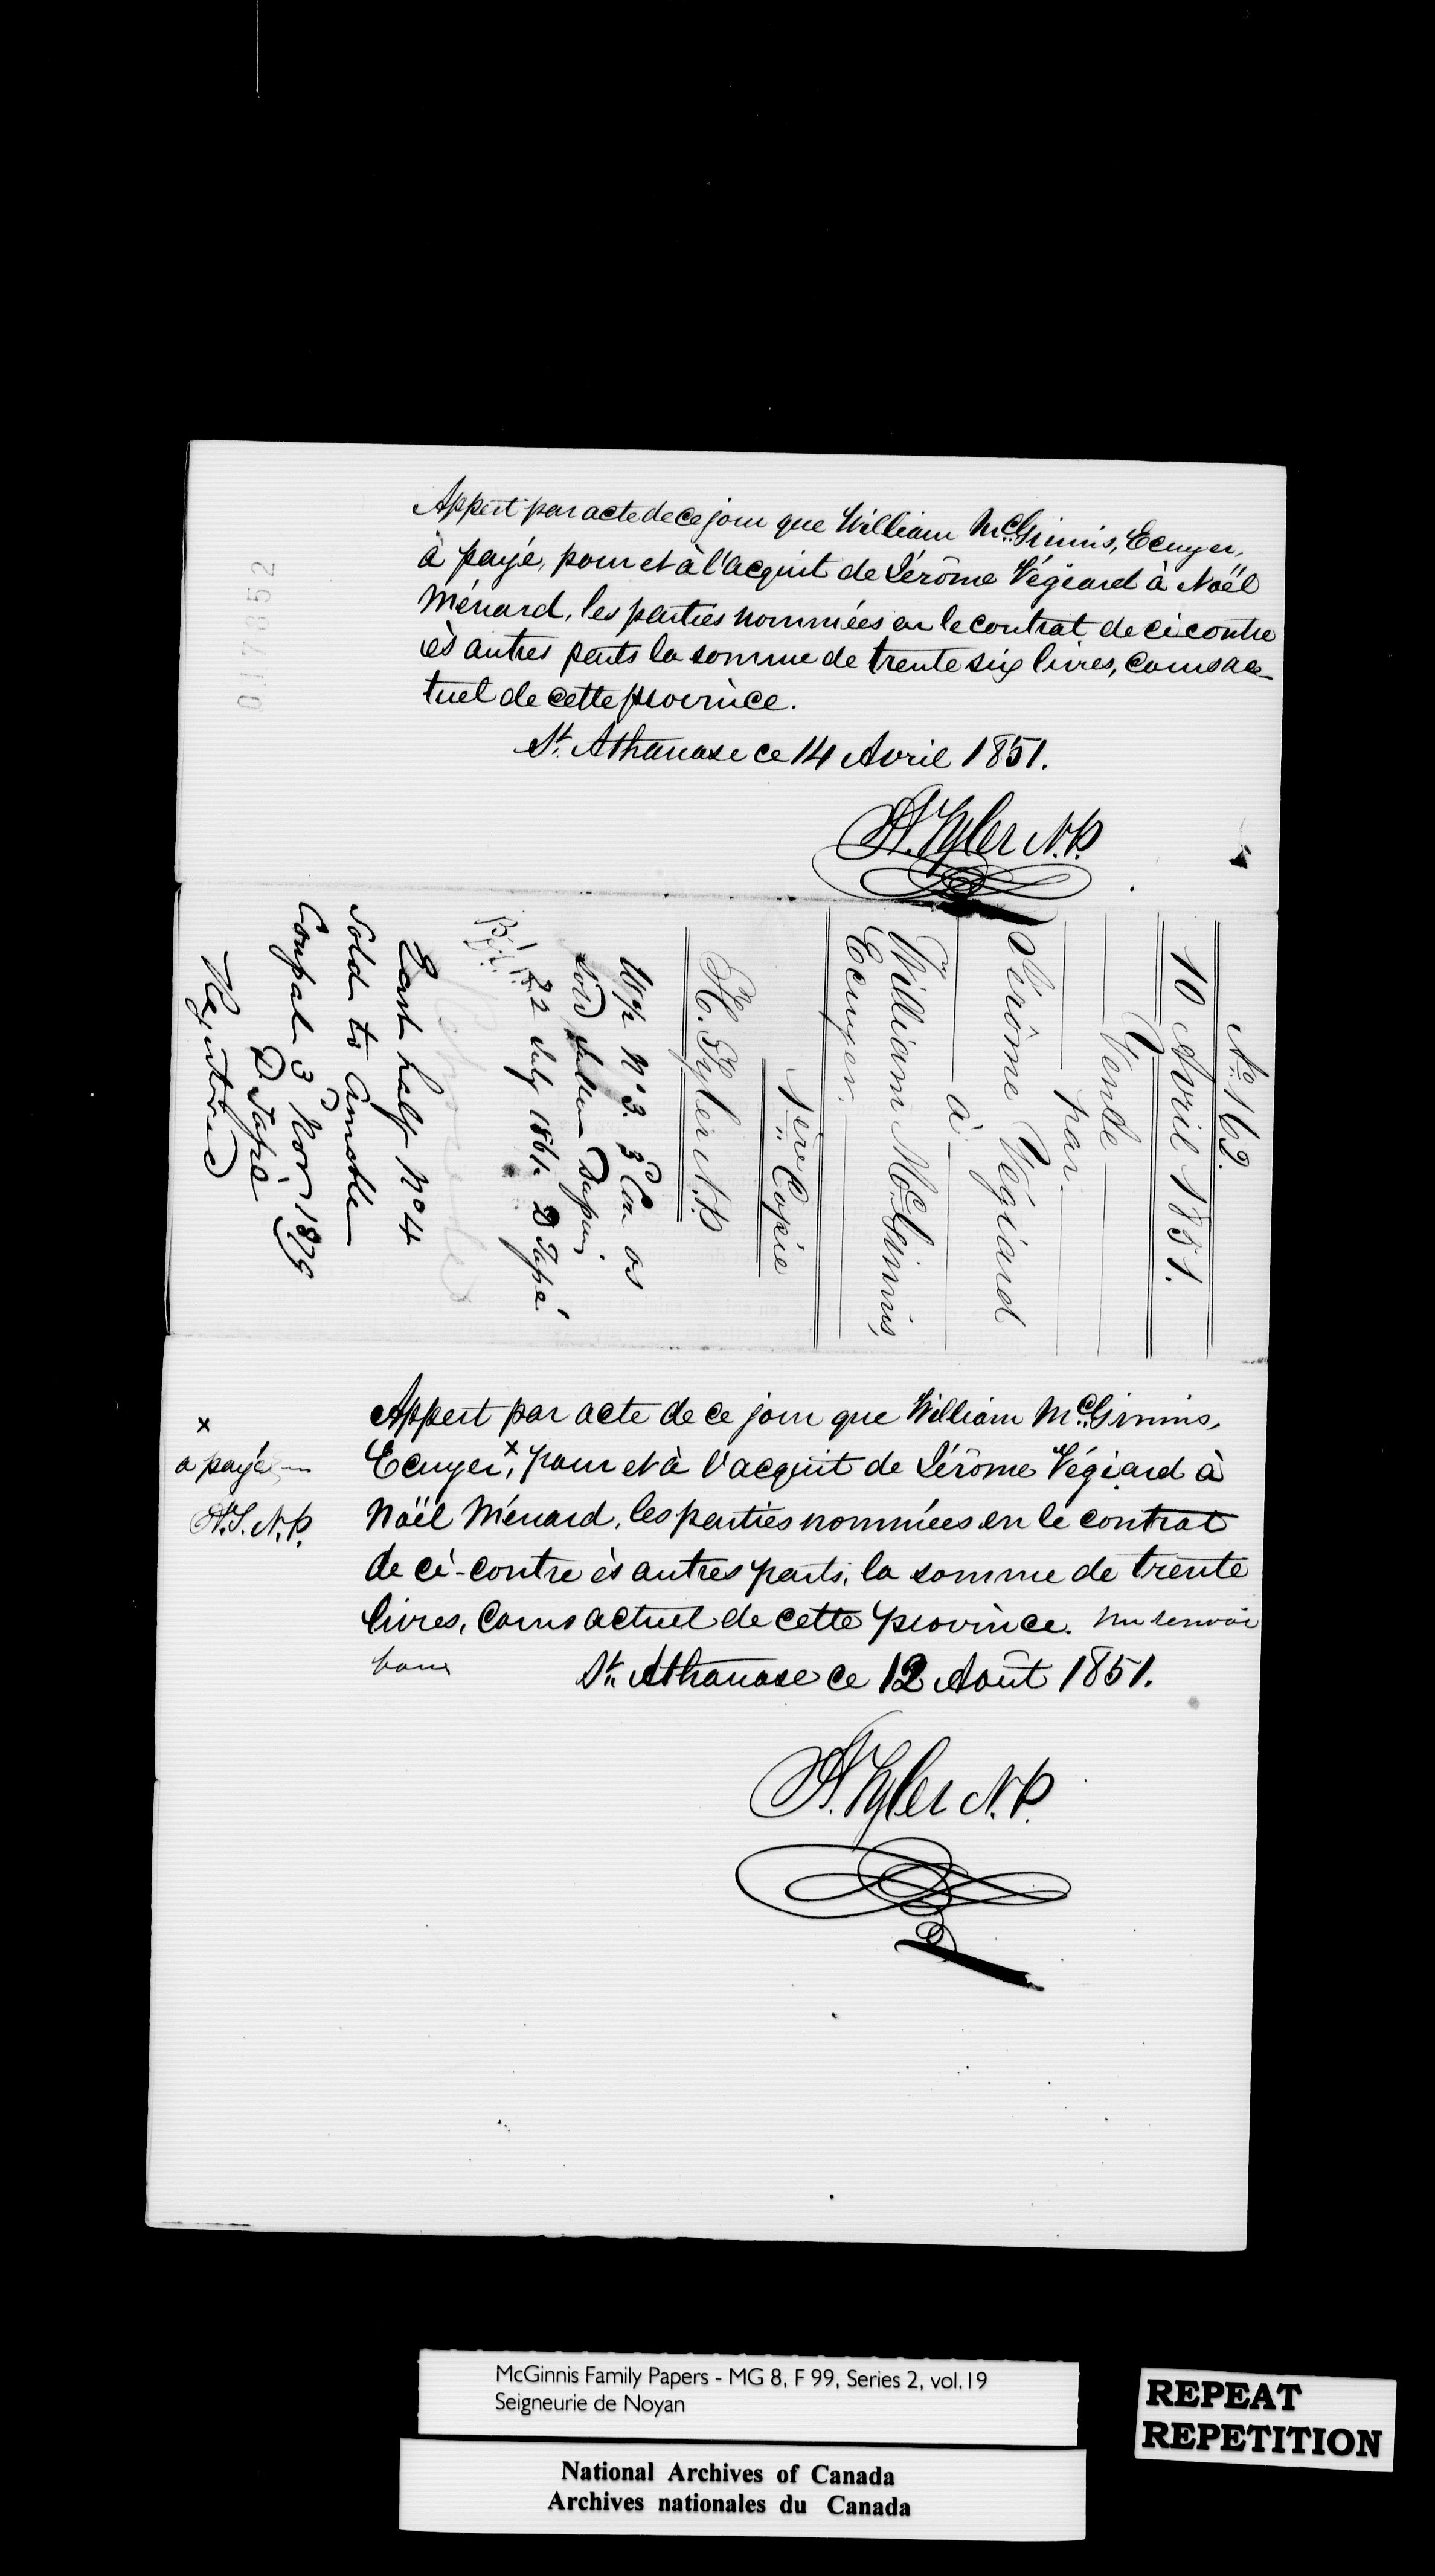 Appert par acte de ce jour que William McGinnis, Ecuyer,
à payé, pour et à l'acquit de Jérôme Végiard à Noël
Ménard, les parties nommées en le contrat de ci contre
ès autres parts la somme de trente six livres, cours ac-
tuel de cette province.
St. Athanase ce 14 Avril 1851.
H. Tyler N.P.
017852
No. 162.
10 Avril 1851.
Vente
par
Jérôme Végiard
à
William McGinnis,
Ecuyer.
1ère Copie
H. Tyler N.P.
No 3. 3 Con
Sold
22 July 1861.
East half No 4
Sold to
3 Nov 1879
Registered
Appert par acte de ce jour que William McGinnis,
x
a payé
H.T. N.P.
Ecuyer x, pour et à l'acquit de Jérôme Végiard à
Noël Ménard, les parties nommées en le contrat
de ci-contre ès autres parts, la somme de trente
livres, cours actuel de cette province. Un renvoi
bon
St. Athanase ce 12 Août 1851.
H. Tyler N.P.
McGinnis Family Papers - MG 8, F 99, Series 2, vol.19
Seigneurie de Noyan
National Archives of Canada
Archives nationales du Canada
REPEAT
REPETITION